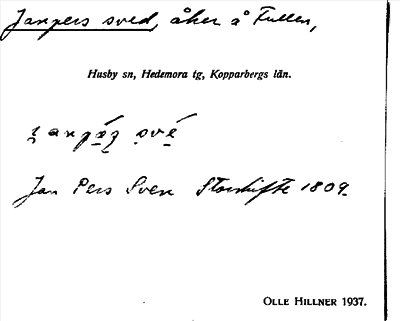 Janpers sved, åker å Fullen,
Husby sn, Hedemora tg, Kopparbergs län.
Jan Pers Sven Storskifte 1809.
OLLE HILLNER 1937.